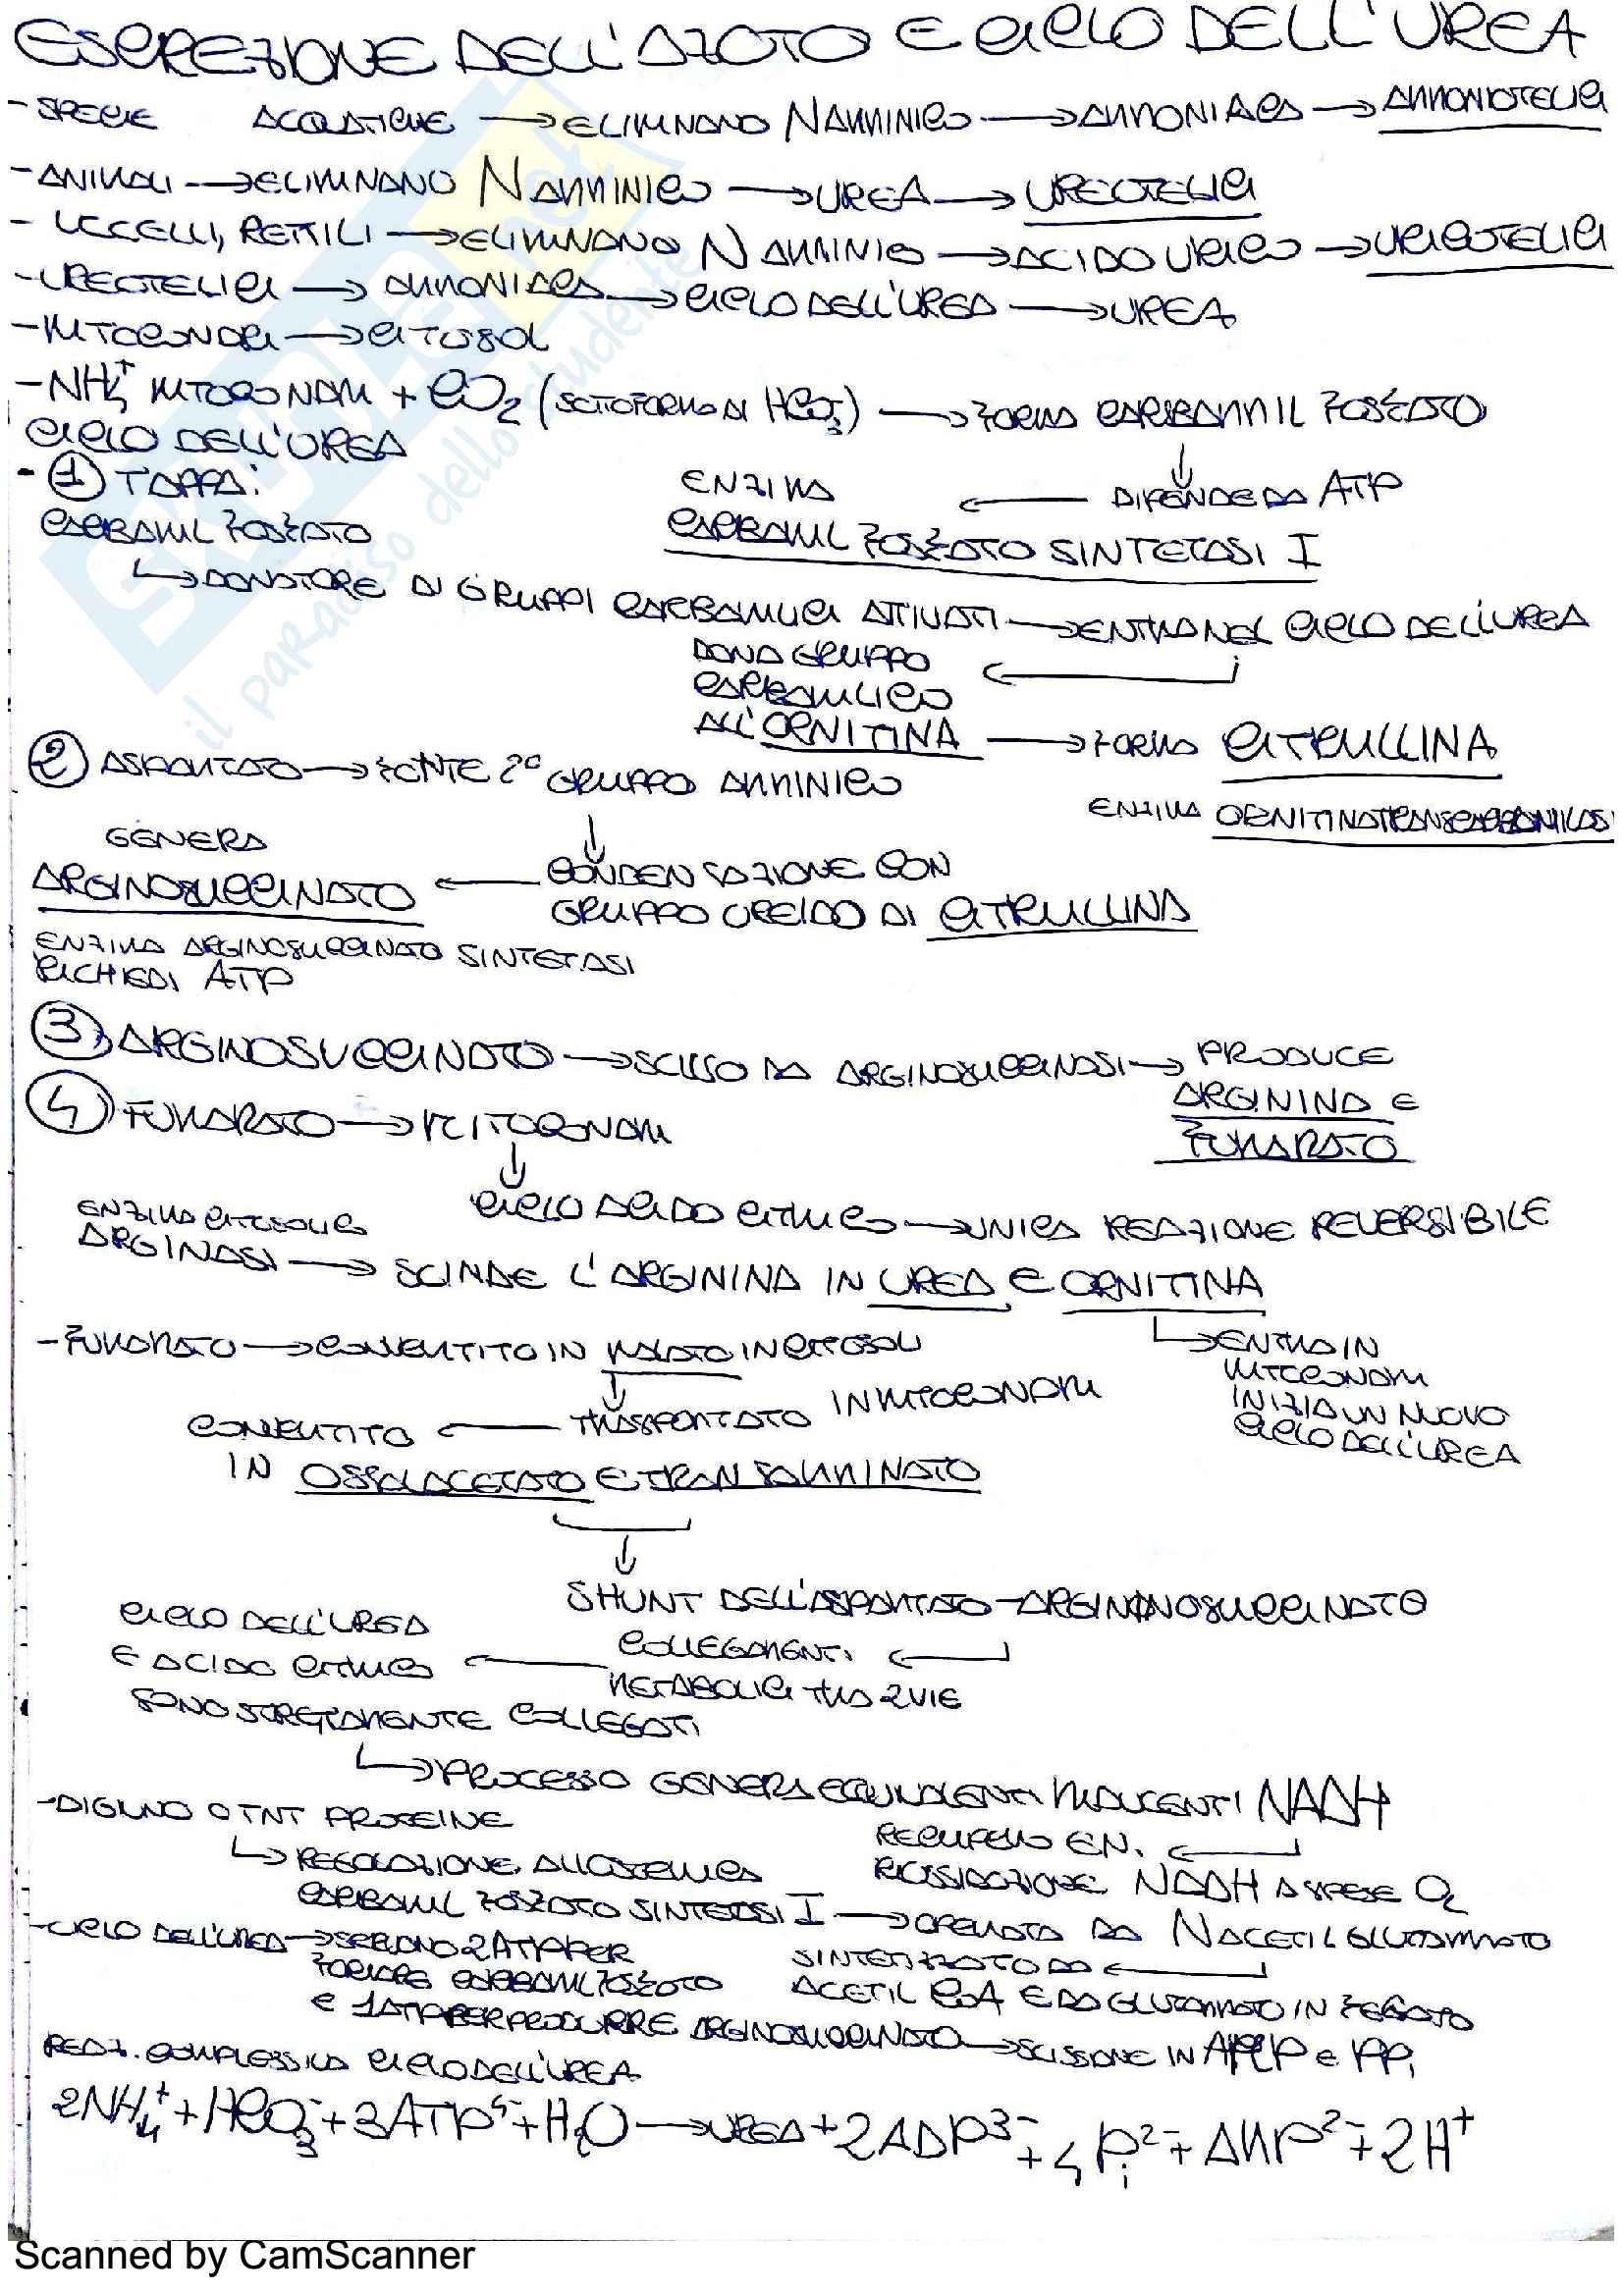 ESCREZIONE DELL'AZOTO E CICLO DELL'UREA
- SPECIE ACQUATICHE → ELIMINANO N AMMINICO → AMMONIACA → AMMONIOTELICI
- ANIMALI → ELIMINANO N AMMINICO → UREA → UREOTELICI
- UCCELLI, RETTILI → ELIMINANO N AMMINICO → ACIDO URICO → URICOTELICI
- UREOTELICI → AMMONIACA → CICLO DELL'UREA → UREA
- MITOCONDRI → CITOSOL
- NH4+ MITOCONDRI + CO2 (SOTTOFORMA DI HCO3-) → FORMA CARBAMMIL FOSFATO
CICLO DELL'UREA
- 1 TAPPA:
ENZIMA ← DIPENDE DA ATP
CARBAMIL FOSFATO
CARBAMIL FOSFATO SINTETASI I
↳ DONATORE DI GRUPPI CARBAMILICI ATTIVATI → ENTRA NEL CICLO DELL'UREA
DONA GRUPPO
CARBAMILICO
ALL'ORNITINA → FORMA CITRULLINA
2 ASPARTATO → FONTE 2° GRUPPO AMMINICO
ENZIMA ORNITINATRANSCARBAMILASI
GENERA
ARGINOSUCCINATO ← CONDENSAZIONE CON
GRUPPO UREIDO DI CITRULLINA
ENZIMA ARGINOSUCCINATO SINTETASI
RICHIEDI ATP
3 ARGINOSUCCINATO → SCISSO DA ARGINOSUCCINASI → PRODUCE
ARGININA E
FUMARATO
4 FUMARATO → MITOCONDRI
CICLO ACIDO CITRICO → UNICA REAZIONE REVERSIBILE
ENZIMA CITOSOLICO
ARGINASI → SCINDE L'ARGININA IN UREA E ORNITINA
- FUMARATO → CONVERTITO IN MALATO IN CITOSOL
↳ ENTRA IN
MITOCONDRI
INIZIA UN NUOVO
CICLO DELL'UREA
CONVERTITO ← TRASPORTATO IN MITOCONDRI
IN OSSALACETATO E TRANSAMMINATO
SHUNT DELL'ASPARTATO-ARGININOSUCCINATO
CICLO DELL'UREA
E ACIDO CITRICO ← COLLEGAMENTI
METABOLICI TRA 2 VIE
SONO STRETTAMENTE COLLEGATI
↳ PROCESSO GENERA EQUIVALENTI RIDUCENTI NADH
- DIGIUNO O TNT PROTEINE
RECUPERO EN.
RIOSSIDAZIONE NADH A SPESE O2
↳ REGOLAZIONE ALLOSTERICA
CARBAMIL FOSFATO SINTETASI I → OPERATA DA N ACETIL GLUTAMMATO
SINTETIZZATO DA
ACETIL COA E DA GLUTAMMATO IN FEGATO
- CICLO DELL'UREA → SERVONO 2 ATP PER
FORMARE CARBAMIL FOSFATO
E 1 ATP PER PRODURRE ARGINOSUCCINATO → SCISSIONE IN AMP E PPi
REAZ. COMPLESSIVA CICLO DELL'UREA
2NH4+ + HCO3- + 3ATP4- + H2O → UREA + 2ADP3- + 4Pi2- + AMP2- + 2H+
SKUOLA.net
il paradiso dello studente
Scanned by CamScanner